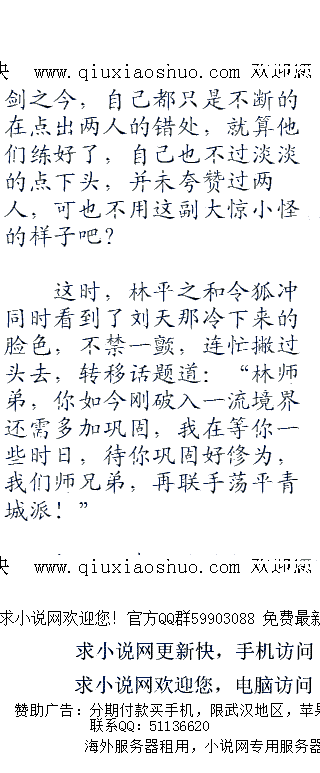 快 www.qiuxiaoshuo.com 欢迎您
剑之今，自己都只是不断的
在点出两人的错处，就算他
们练好了，自己也不过淡淡
的点下头，并未夸赞过两
人，可也不用这副大惊小怪
的样子吧？
这时，林平之和令狐冲
同时看到了刘天那冷下来的
脸色，不禁一颤，连忙撇过
头去，转移话题道：“林师
弟，你如今刚破入一流境界
还需多加巩固，我在等你一
些时日，待你巩固好修为，
我们师兄弟，再联手荡平青
城派！”
快 www.qiuxiaoshuo.com 欢迎您
求小说网欢迎您！官方QQ群59903088 免费最新
求小说网更新快，手机访问
求小说网欢迎您，电脑访问
赞助广告：分期付款买手机，限武汉地区，苹果
联系QQ：51136620
海外服务器租用，小说网专用服务器